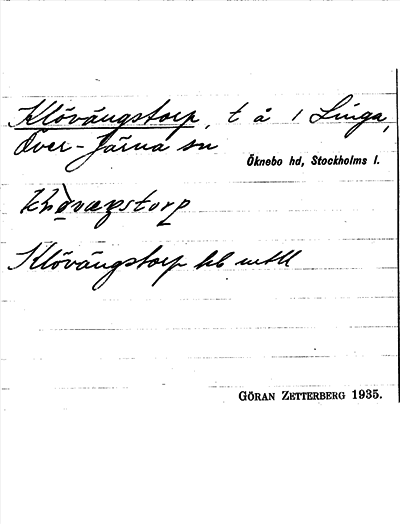 Klövängstorp, t å 1 Linga,
Över-Järna sn
Öknebo hd, Stockholms l.
Klövängstorp kb mtl
GÖRAN ZETTERBERG 1935.